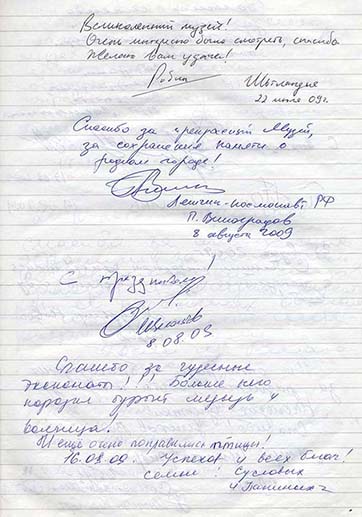 Великолепный музей!
Очень интересно было смотреть, спасибо
Желаю вам удачи!
Робин Шотландия
22 июля 09г.
Спасибо за прекрасный музей,
за сохранение памяти о
родном городе!
Летчик-космонавт РФ
П. Виноградов
8 августа 2009
С праздником!
8.08.09
Спасибо за чудесные
экспонаты!!! Больше всего
И ещё очень понравились птицы!
16.08.09. Успехов и всех благ!
семьи: Сусловых